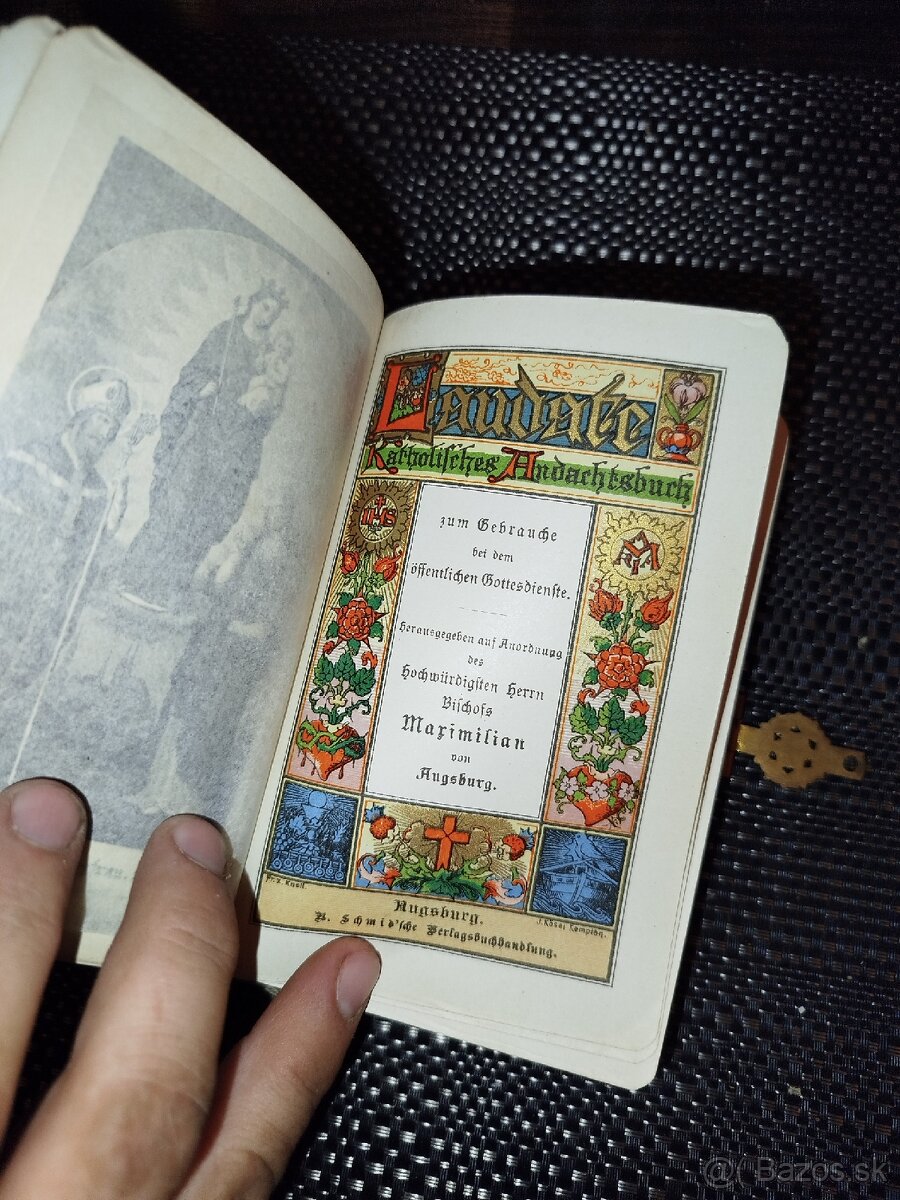 Laudate
Katholisches Andachtsbuch
IHS
zum Gebrauche
bei dem
öffentlichen Gottesdienste.
Herausgegeben auf Anordnung
des
Hochwürdigsten Herrn
Bischofs
Maximilian
von
Augsburg.
Augsburg.
B. Schmid'sche Verlagsbuchhandlung.
@( Bazos.sk